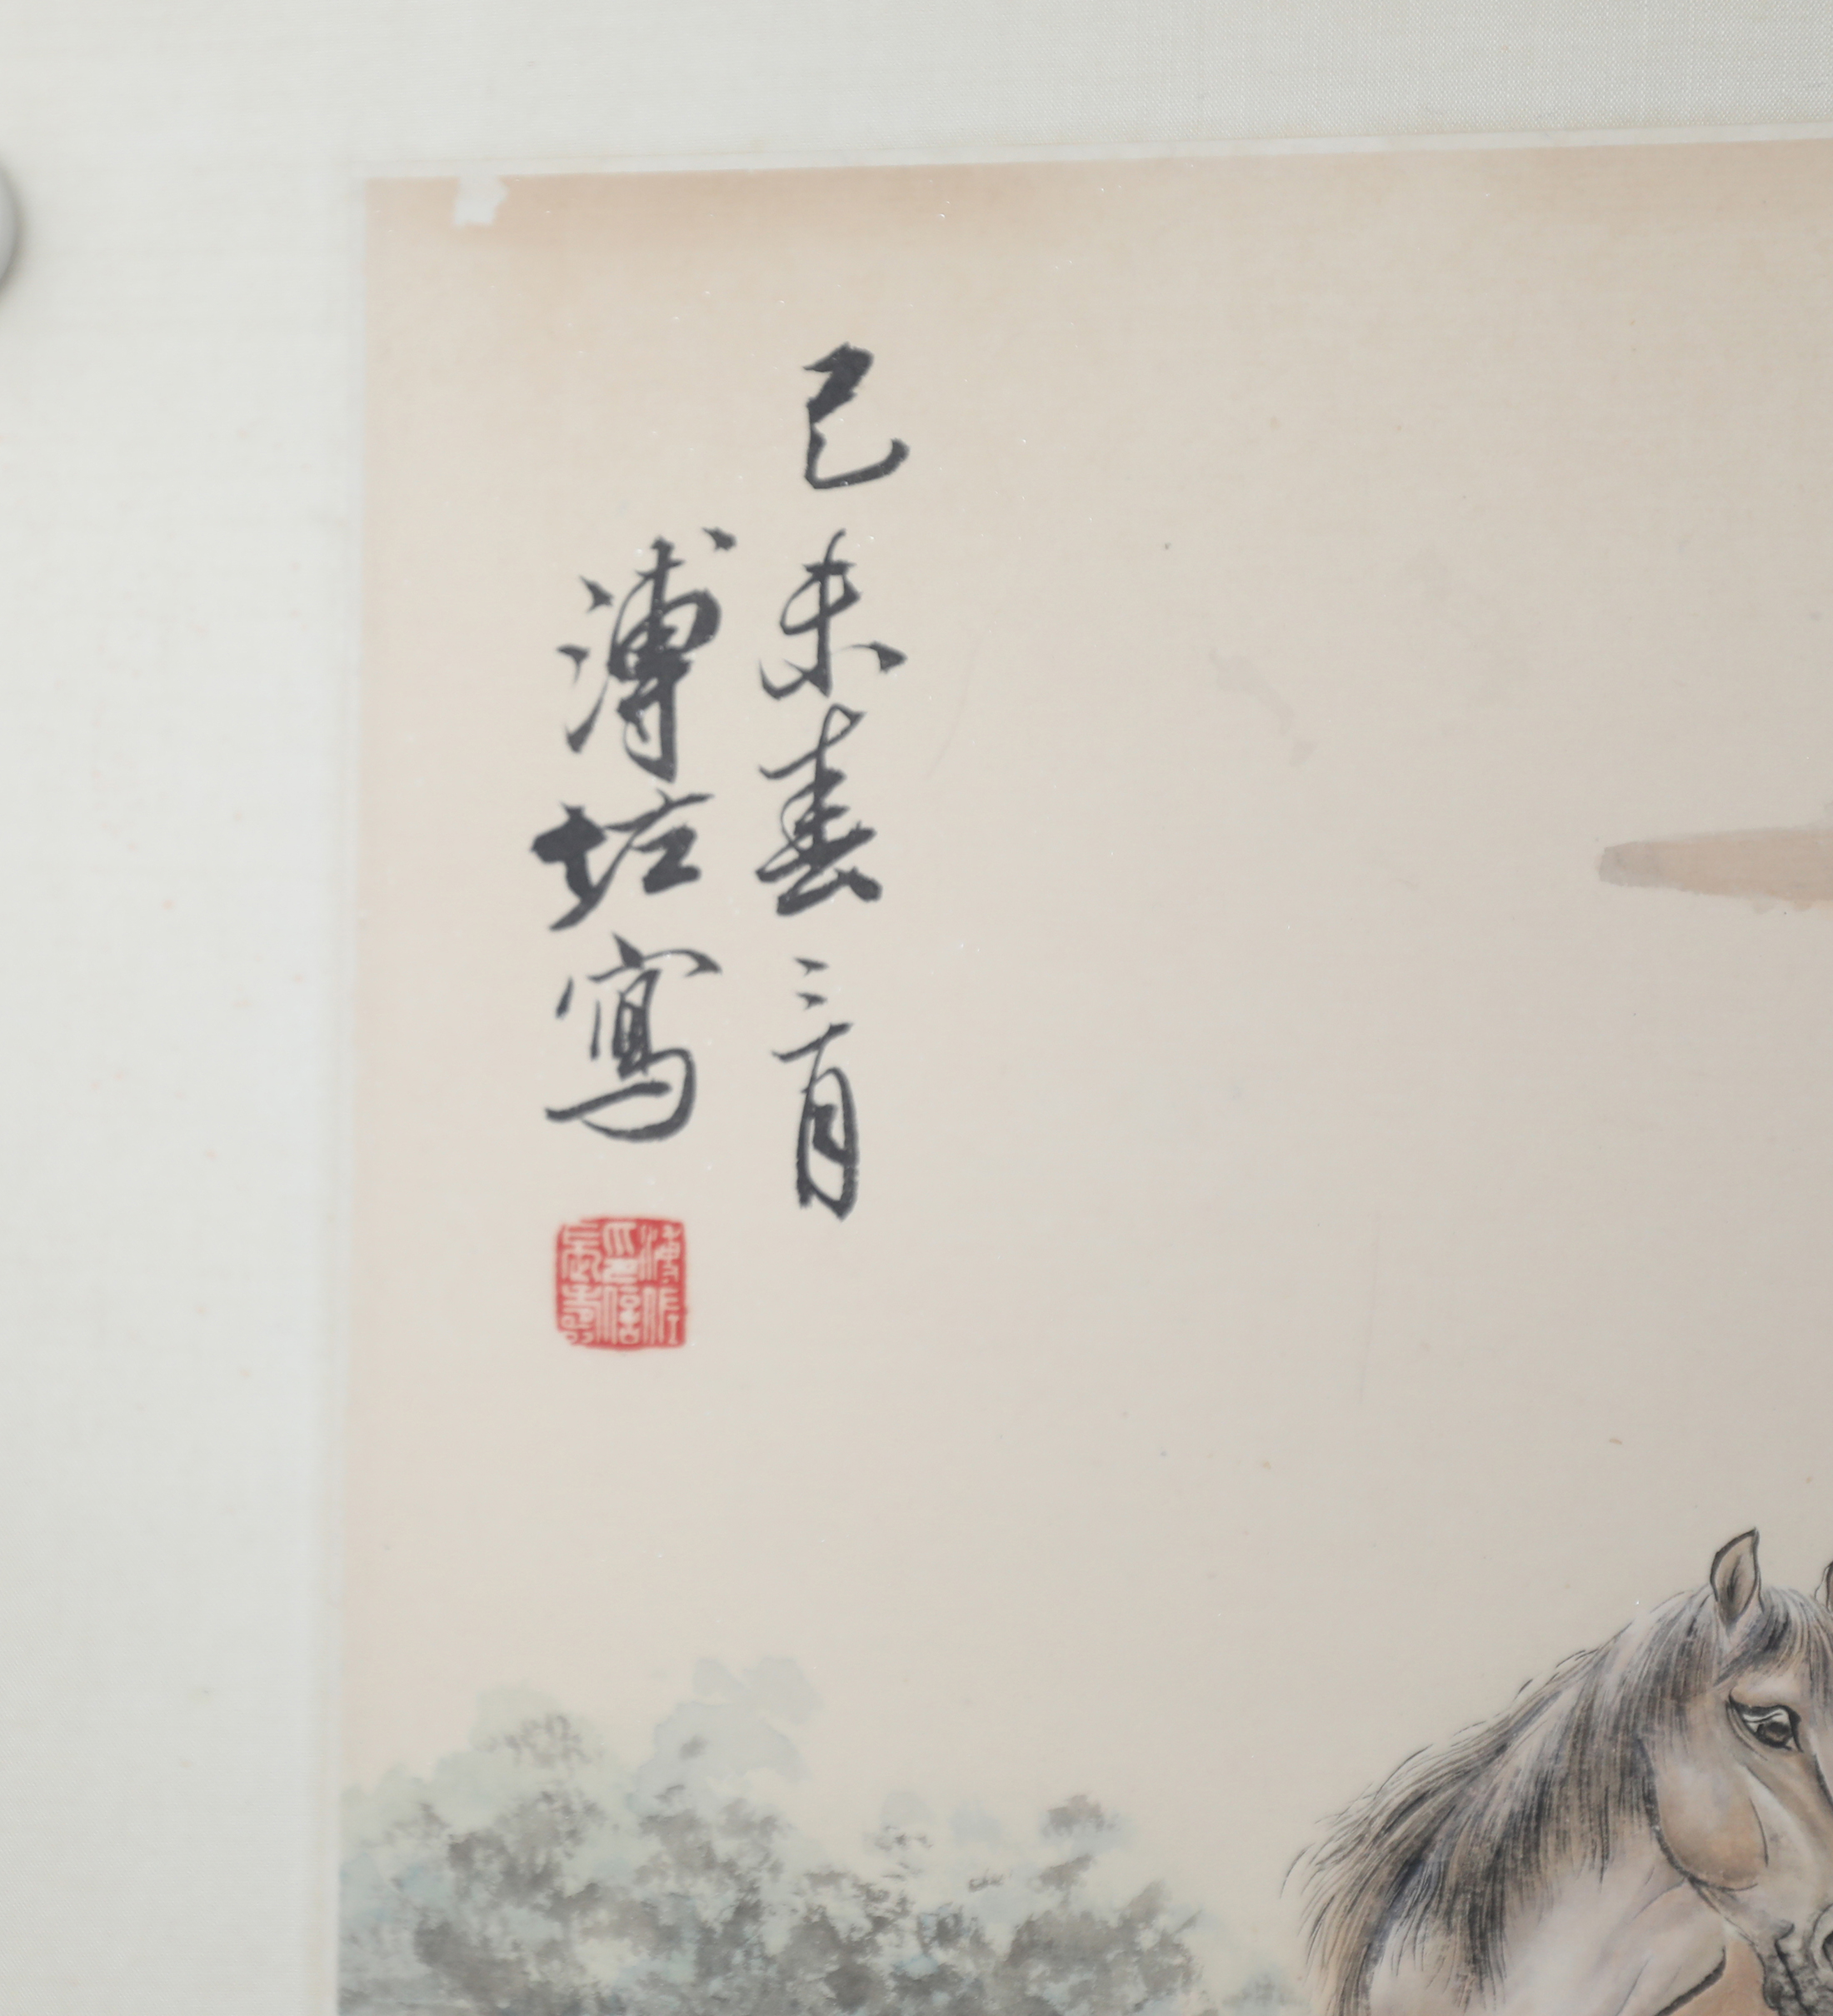 己未春三月
溥佐寫
溥佐
印信
長壽